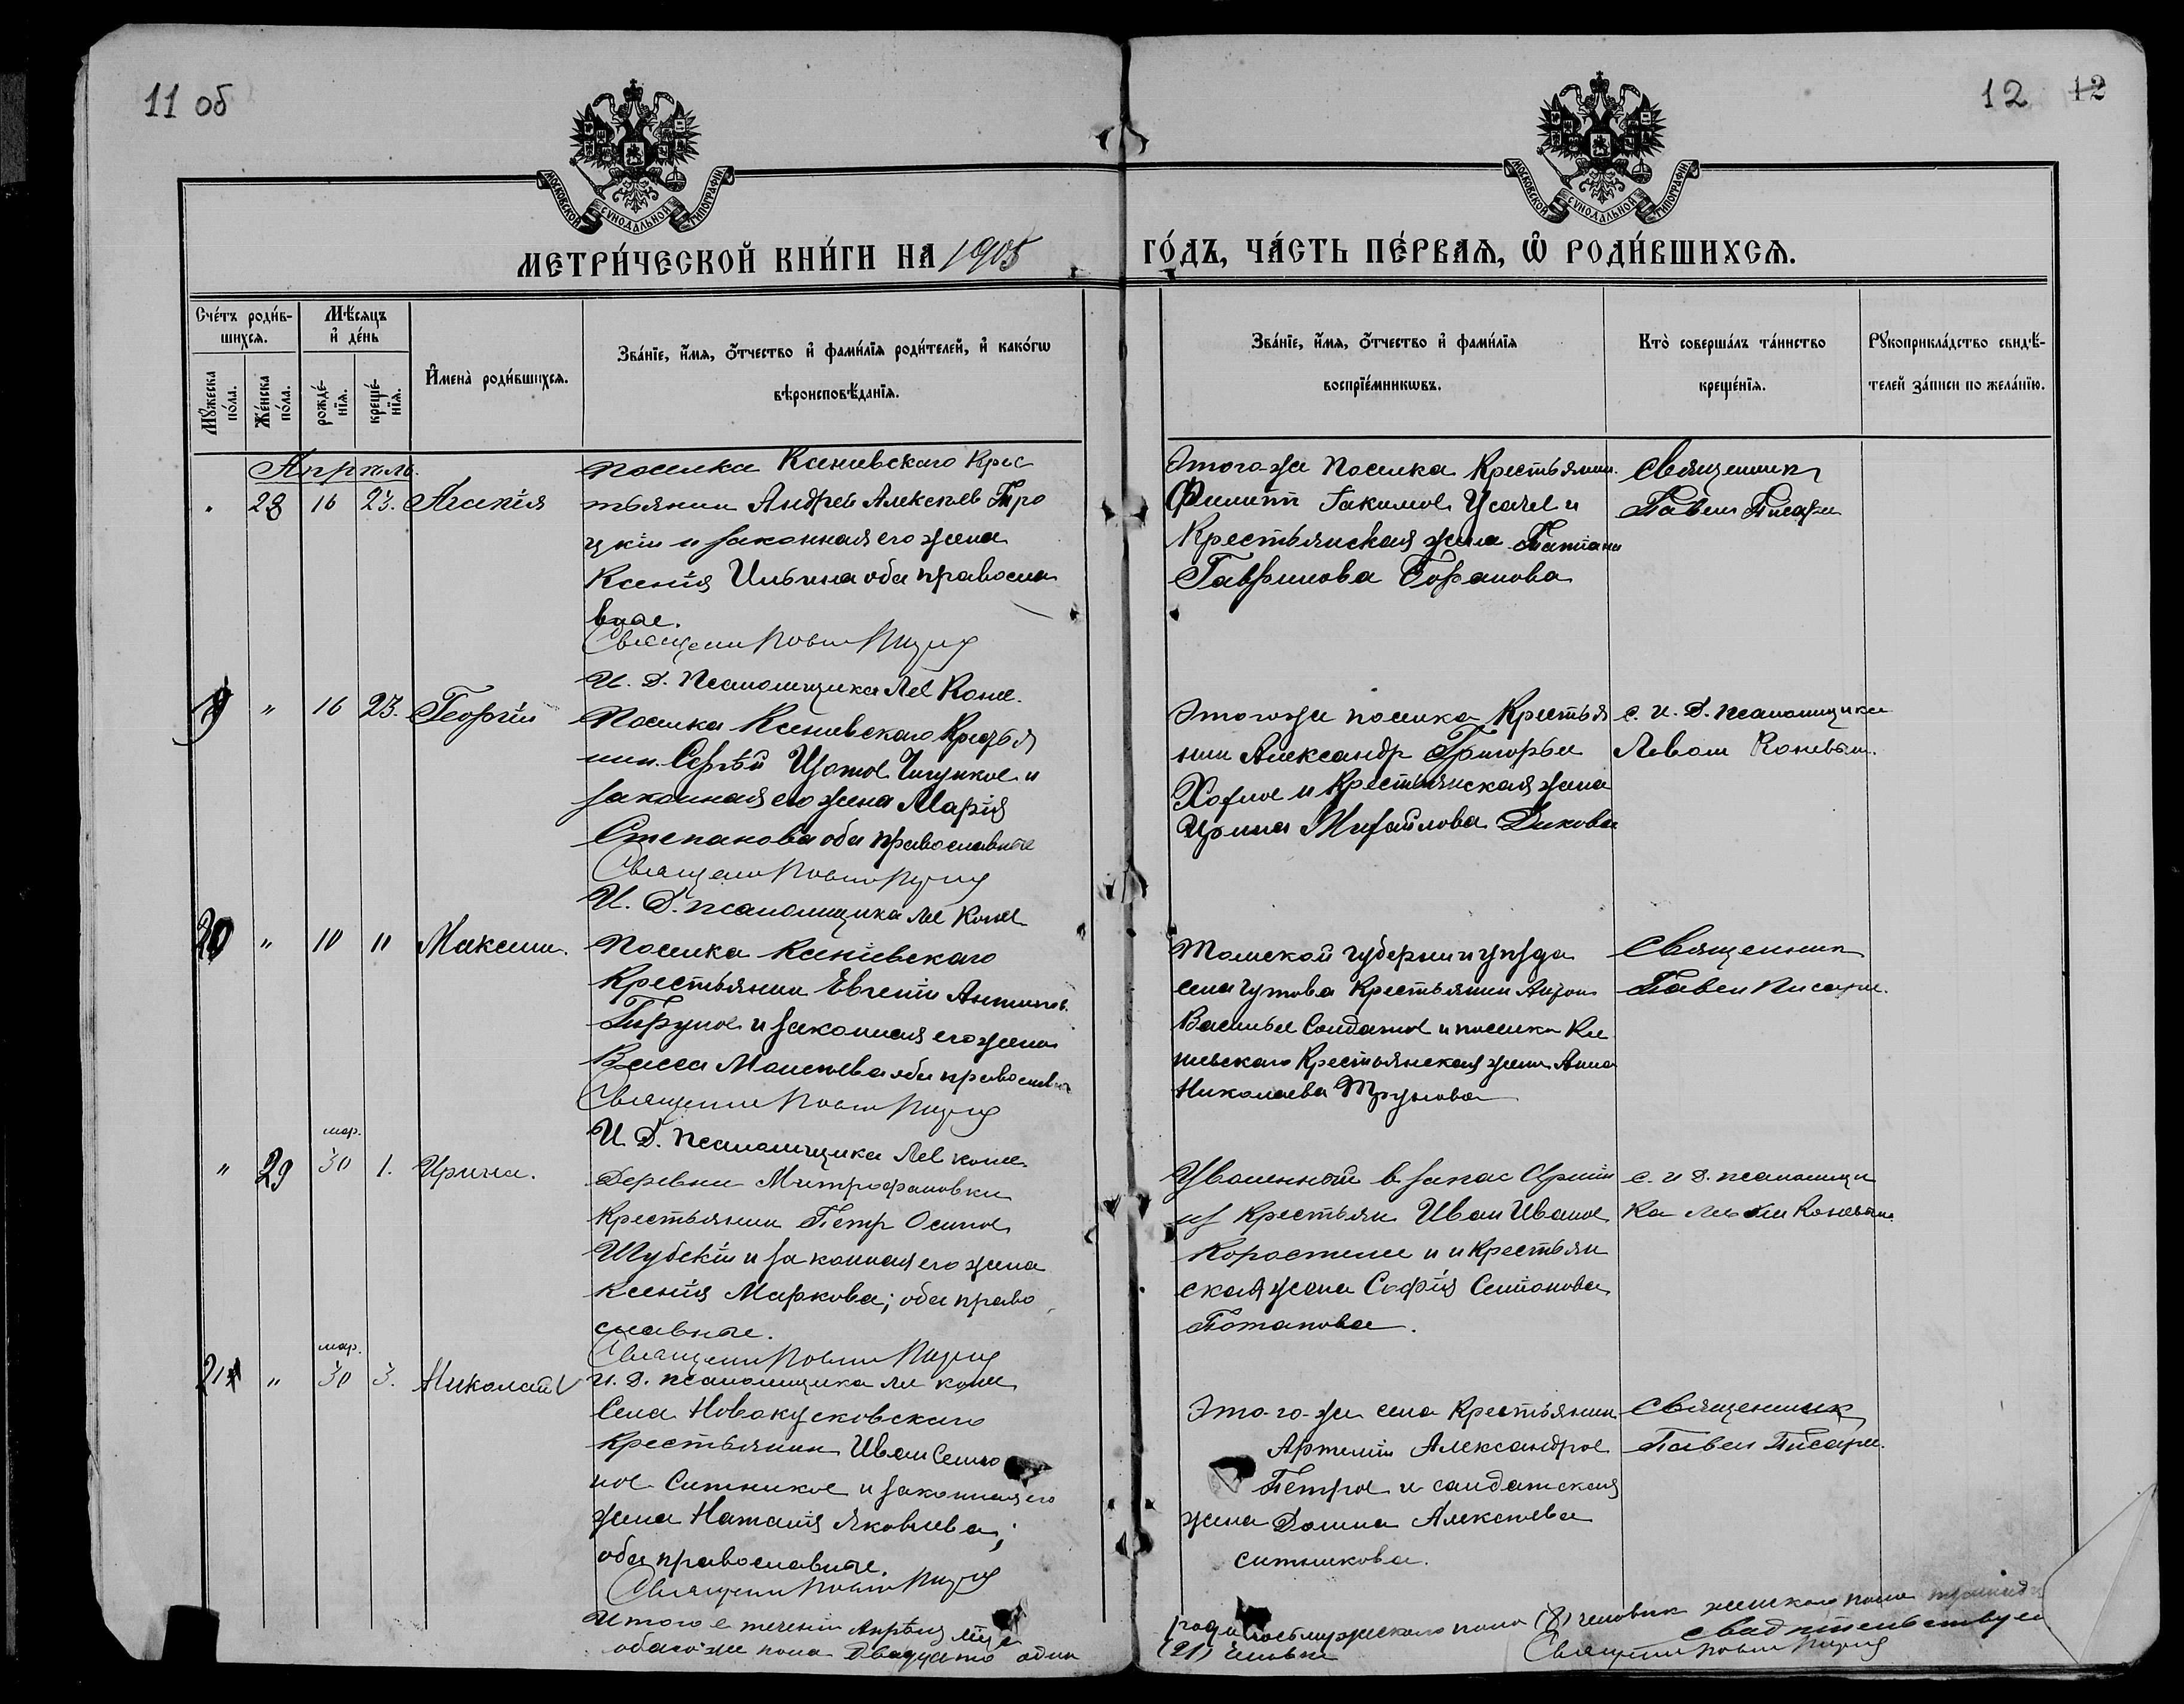 11 об
12 12
МОСКОВСКОЙ СѴНОДАЛЬНОЙ ТИПОГРАФІИ
МОСКОВСКОЙ СѴНОДАЛЬНОЙ ТИПОГРАФІИ
МЕТРИ́ЧЕСКОЙ КНИ́ГИ НА 1905
ГО́ДЪ, ЧА́СТЬ ПЕ́РВАѦ, Ѡ҆ РОДИ́ВШИХСѦ.
Сче́тъ роди́в-
шихсѧ.
Мꙋ́жеска по́ла.
Же́нска по́ла.
Мѣ́сѧцъ
и҆ де́нь
рожде́-
нїѧ.
креще́-
нїѧ.
И҆мена̀ роди́вшихсѧ.
Зва́нїе, и҆́мѧ, ѻ҆́тчество и҆ фами́лїѧ роди́телей, и҆ како́гѡ
вѣроисповѣ́данїѧ.
Зва́нїе, и҆́мѧ, ѻ҆́тчество и҆ фами́лїѧ
воспрїе́мникѡвъ.
Кто̀ соверша́лъ та́инство
креще́нїѧ.
Рꙋкоприкла́дство свидѣ́-
телей за́писи по жела́нїю.
Апрѣль.
28 16 23. Агапія
поселка Ксениевскаго Крес
тьянин Андрей Алексѣев Тро
цкій и законная его жена
Ксенія Ильина оба правосла
вные.
Священн Павел Писарев
И. Д. Псаломщика Лев Конев
Этого-же Поселка Крестьянин
Филипп Іакимов Усачев и
Крестьянская жена Татіана
Гаврилова
Священник
Павел Писарев
19 " 16 23. Георгій
Поселка Ксениевскаго Крестья
нин Сергѣй и
законная его жена Марія
Степанова оба православные
Священн Павел Писарев
И. Д. псаломщика Лев Конев
Этого же поселка Крестья
нин Александр Григорьев
и Крестьянская жена
Ирина Михайлова Дикова
с. и. д. псаломщика
Львом Коневым.
20 " 10 11 Максим.
Поселка Ксеніевскаго
Крестьянин Евгеній Антипов
и законная его жена
Васса Моисѣева оба православн
Священн Павел Писарев
И. Д. Псаломщика Лев Конев
Томской губерніи и уѣзда
села Крестьянин
Васильев Солдатов и поселка Ксе
ніевскаго Крестьянская жена Анна
Николаева Трунова
Священник
Павел Писарев.
" 29 мар. 30 1. Ирина.
Деревни Митрофановки
Крестьянин Петр Осипов
Шубскій и законная его жена
Ксенія Маркова; оба право
славные.
Священн Павел Писарев
И. Д. псаломщика Лев Конев
Уволенный в запас Арміи
из крестьян Иван Иванов
и крестьян
ская жена Софія
Потапова.
с. и д. псаломщи
ка Львом Коневым.
21 " мар. 30 3. Николай
Села Новокусковскаго
Крестьянин Иван Семіо
нов Ситников и законная его
жена Наталія Яковлева;
оба православные.
Священн Павел Писарев
Этого-же села Крестьянин
Артемій Александров
Петров и солдатская
жена Домна Алексѣева
ситникова.
Священник
Павел Писарев.
Итого в теченіи Апрѣля мца
обаго же пола Двадцать один
роди лось мужескаго пола (8) человѣк женскаго пола
(21) человѣк
свидѣтельствую
Священн Павел Писарев